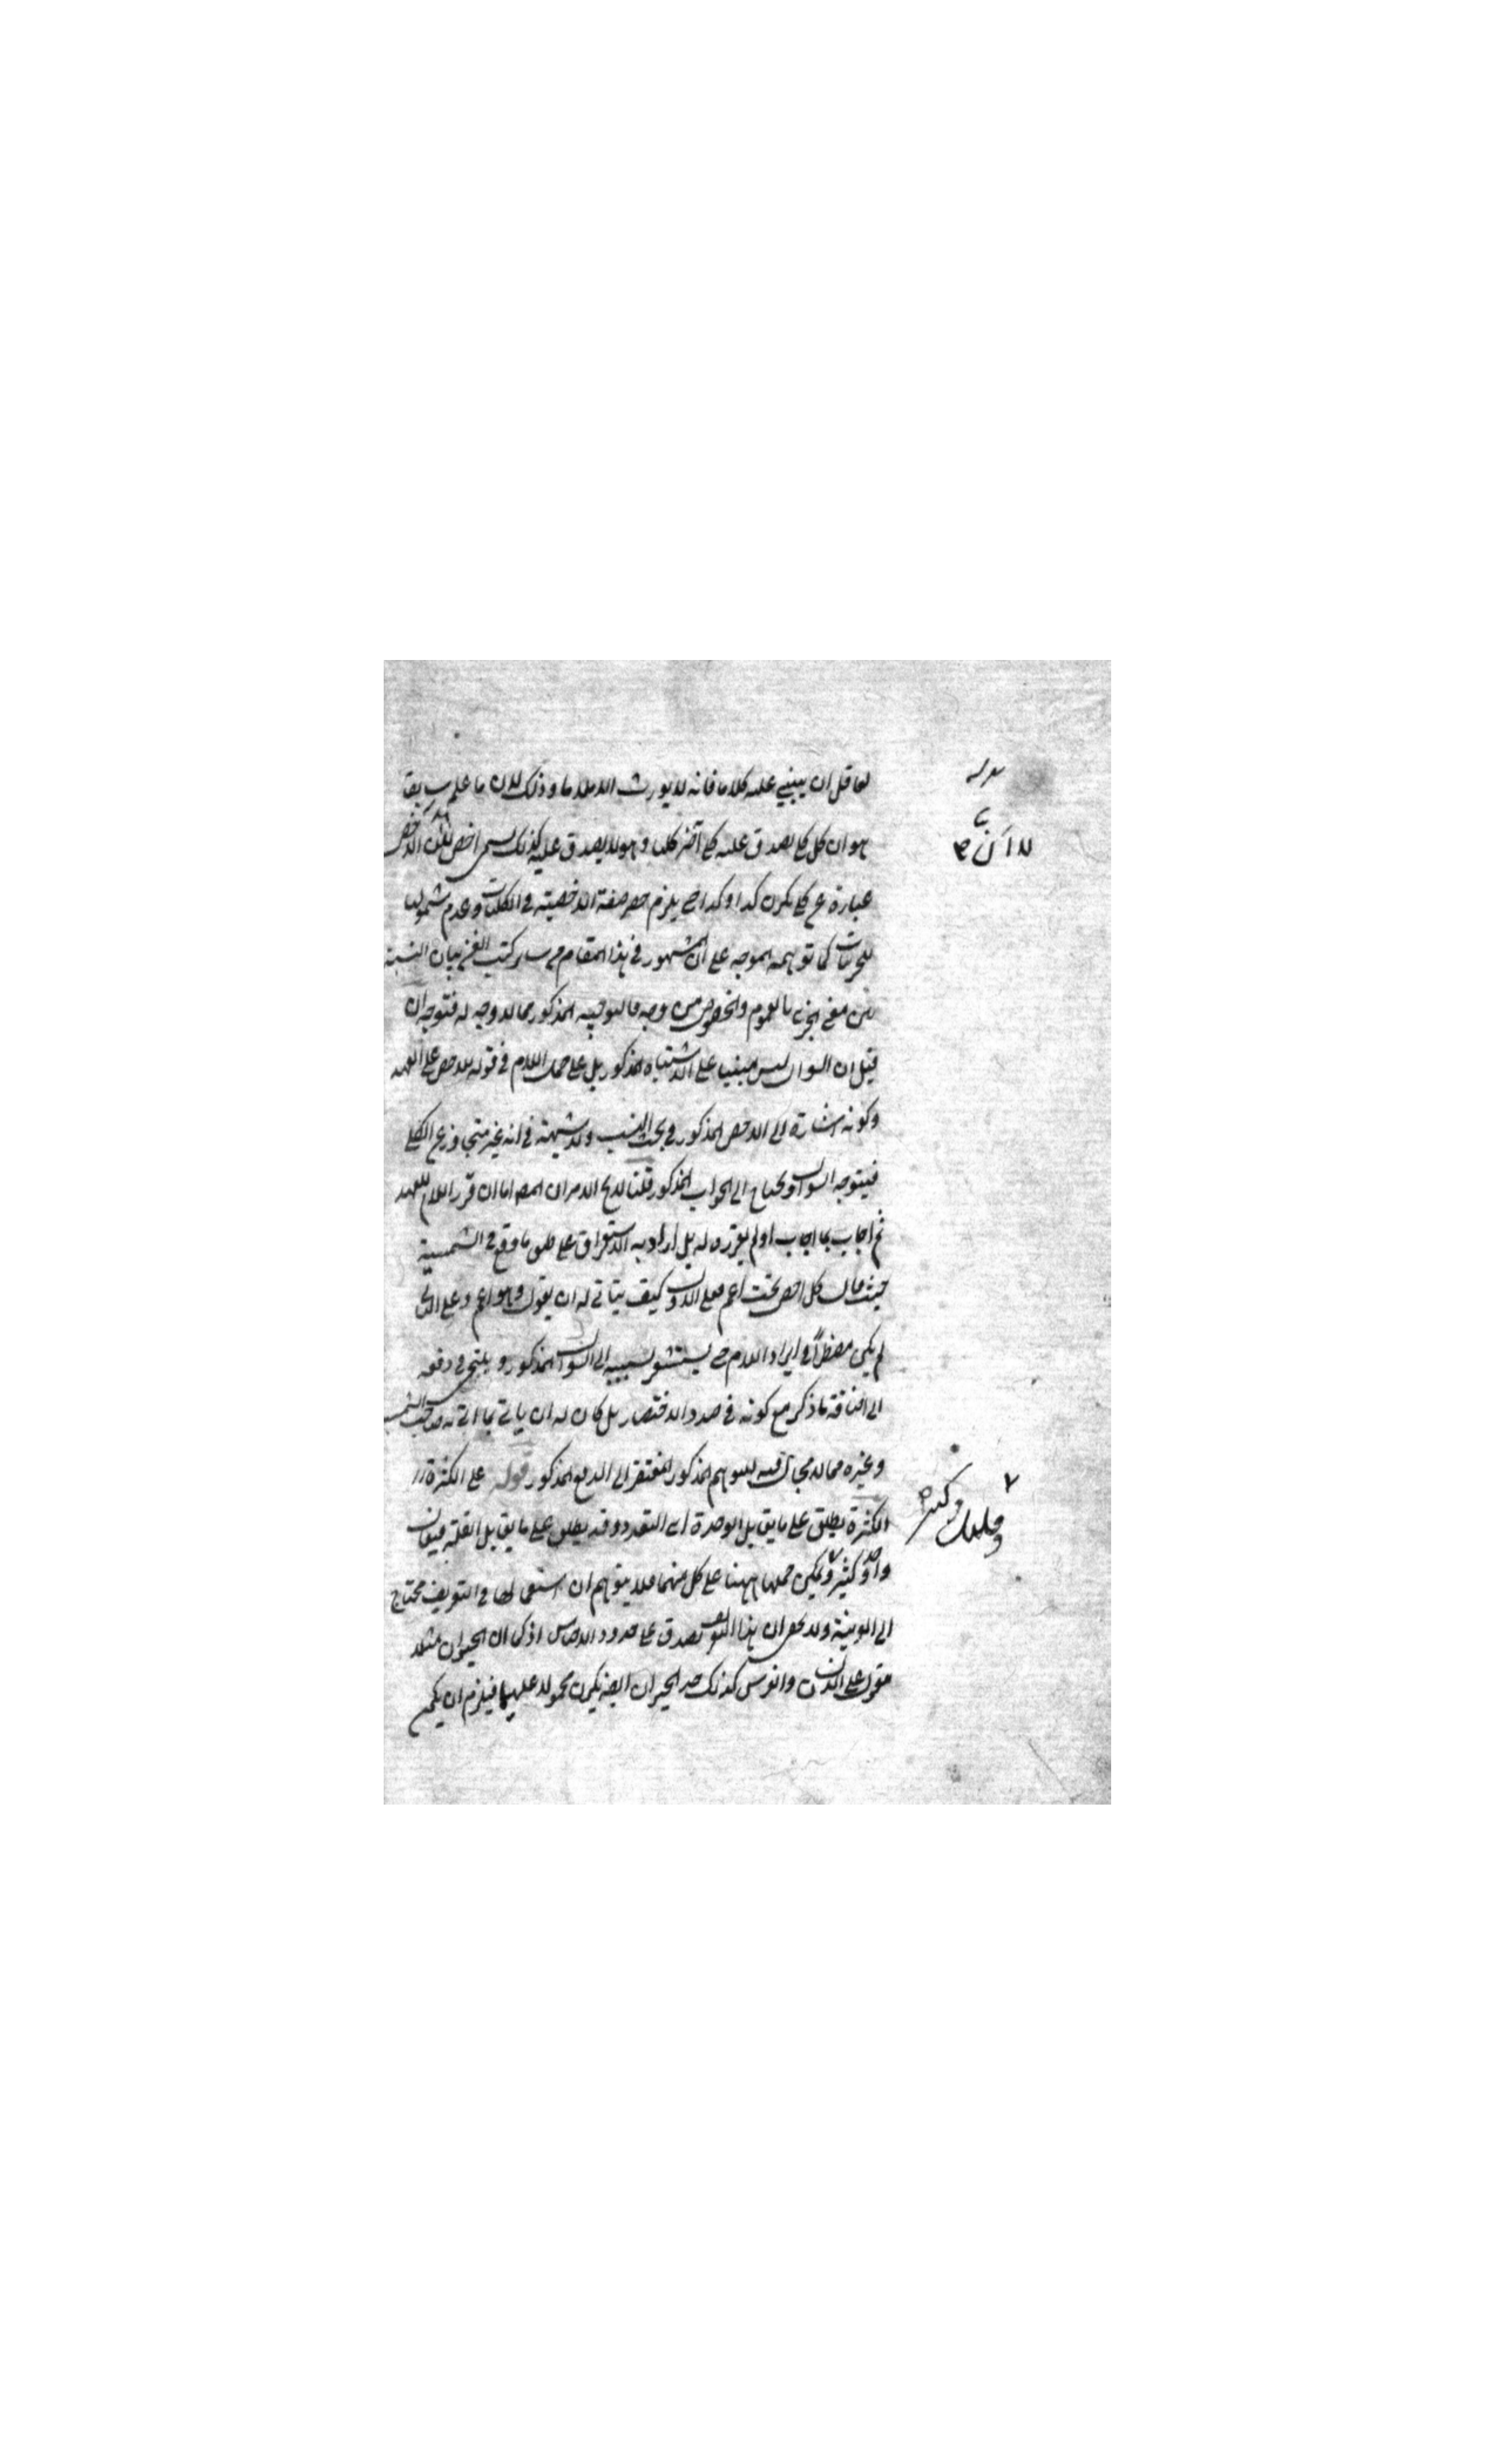 لعاقل ان يبني عليه كلاما فانه لا يورث الا ملاما وذلك لان ما علم سابقا
هو ان كل كلي يصدق عليه كلي آخر كليا وهو لا يصدق عليه كذلك يسمى اخص لا ان الاخص
عبارة عن كلي يكون كذا وكذا حتى يلزم حصر صفة الاخصية في الكليات وعدم شمولها
للجزئيات كما توهمه الموجه على ان المشهور في هذا المقام من ساير كتب الفن بيان النسبة
بين معنى الجزئي بالعموم والخصوص من وجه فالتوجيه المذكور مما لا وجه له فتوجه ان
قيل ان السوال ليس مبنيا على الاشتباه المذكور بل على حمل اللام في قوله للاخص على العهد
وكونه اشارة الى الاخص المذكور في بحث النسب ولا شبهة في انه غير متجاوز عن الكلي
فيتوجه السوال ويحتاج الى الجواب المذكور قلنا لا يخ الامر ان المص اما ان قرر اللام للعهد
ثم اجاب بما اجاب او لم يقرره له بل اراد به الاستغراق على طبق ما وقع في الشمسية
حيث قال كل اخص تحت اعم فعلى الاول كيف يتاتى له ان يقول وهو اعم وعلى الثاني
لم يكن مضطرا في ايراد اللام حتى يستشعر بسببه الى السوال المذكور و يلتجي في دفعه
الى اضافة ما ذكر مع كونه في صدد الاختصار بل كان له ان ياتي بما اتى به صاحب الشمسية
وغيره مما لا مجال فيه للتوهم المذكور المفتقر الى الدفع المذكور قوله على الكثرة اا
الكثرة يطلق على ما يقابل الوحدة اي التعدد وقد يطلق على ما يقابل القلة فيقال
واحد وكثير ويمكن حملها ههنا على كل منهما فلا يتوهم ان استعمالها في التعريف محتاج
الى القرينة ولا يخفى ان هذا التعريف يصدق على حدود الاجناس اذ كما ان الحيوان مثلا
مقول على الانسان والفرس كذلك حد الحيوان ايضا يكون محمولا عليهما فيلزم ان يكون
لا ان
وقليل وكثير